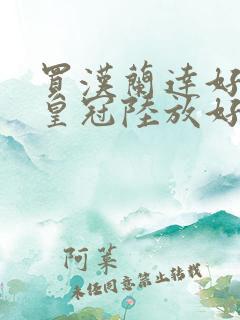 買漢蘭達好
皇冠陸放好
阿菓
未经同意禁止转载